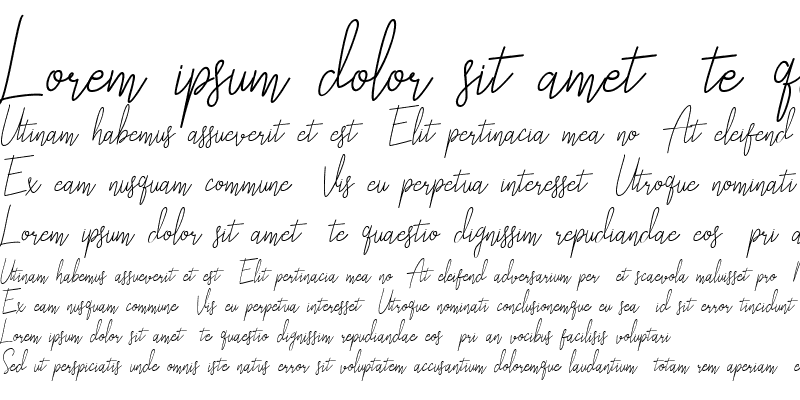 Lorem ipsum dolor sit amet te
Utinam habemus assueverit et est Elit pertinacia mea no At eleifend
Ex eam nusquam commune Vis eu perpetua interesset Utroque nominati
Lorem ipsum dolor sit amet te quaestio dignissim repudiandae eos pri
Utinam habemus assueverit et est Elit pertinacia mea no At eleifend adversarium per et scaevola maluisset pro
Ex eam nusquam commune Vis eu perpetua interesset Utroque nominati conclusionemque eu sea id sit error tincidunt
Lorem ipsum dolor sit amet te quaestio dignissim repudiandae eos pri an vocibus facilisis voluptari
Sed ut perspiciatis unde omnis iste natus error sit voluptatem accusantium doloremque laudantium totam rem aperiam